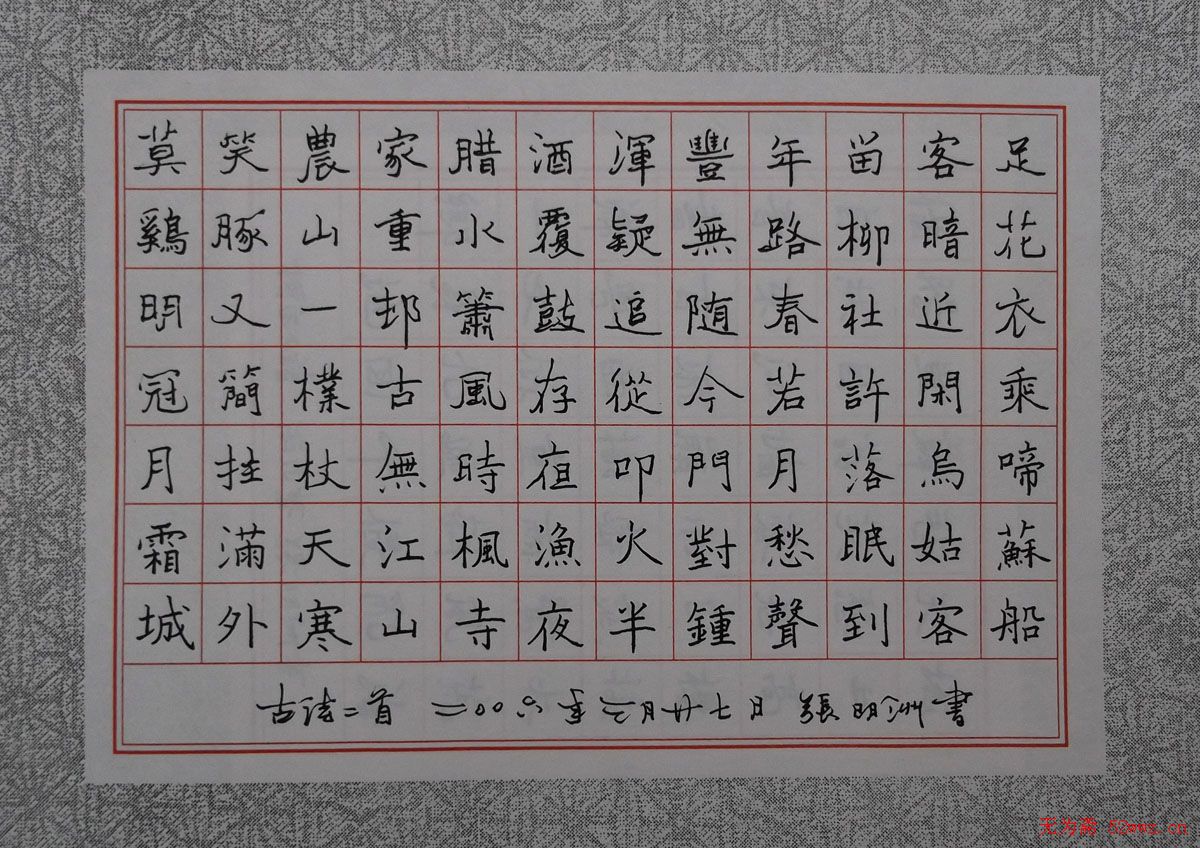 莫笑農家腊酒渾豐年畱客足
鷄豚山重水覆疑無路柳暗花
明又一邨簫鼓追随春社近衣
冠簡樸古風存從今若許閑乘
月拄杖無時夜叩門月落烏啼
霜滿天江楓漁火對愁眠姑蘇
城外寒山寺夜半鍾聲到客船
古诗二首 二〇〇六年三月廿七日 張明洲書
无为斋 52wwz.cn